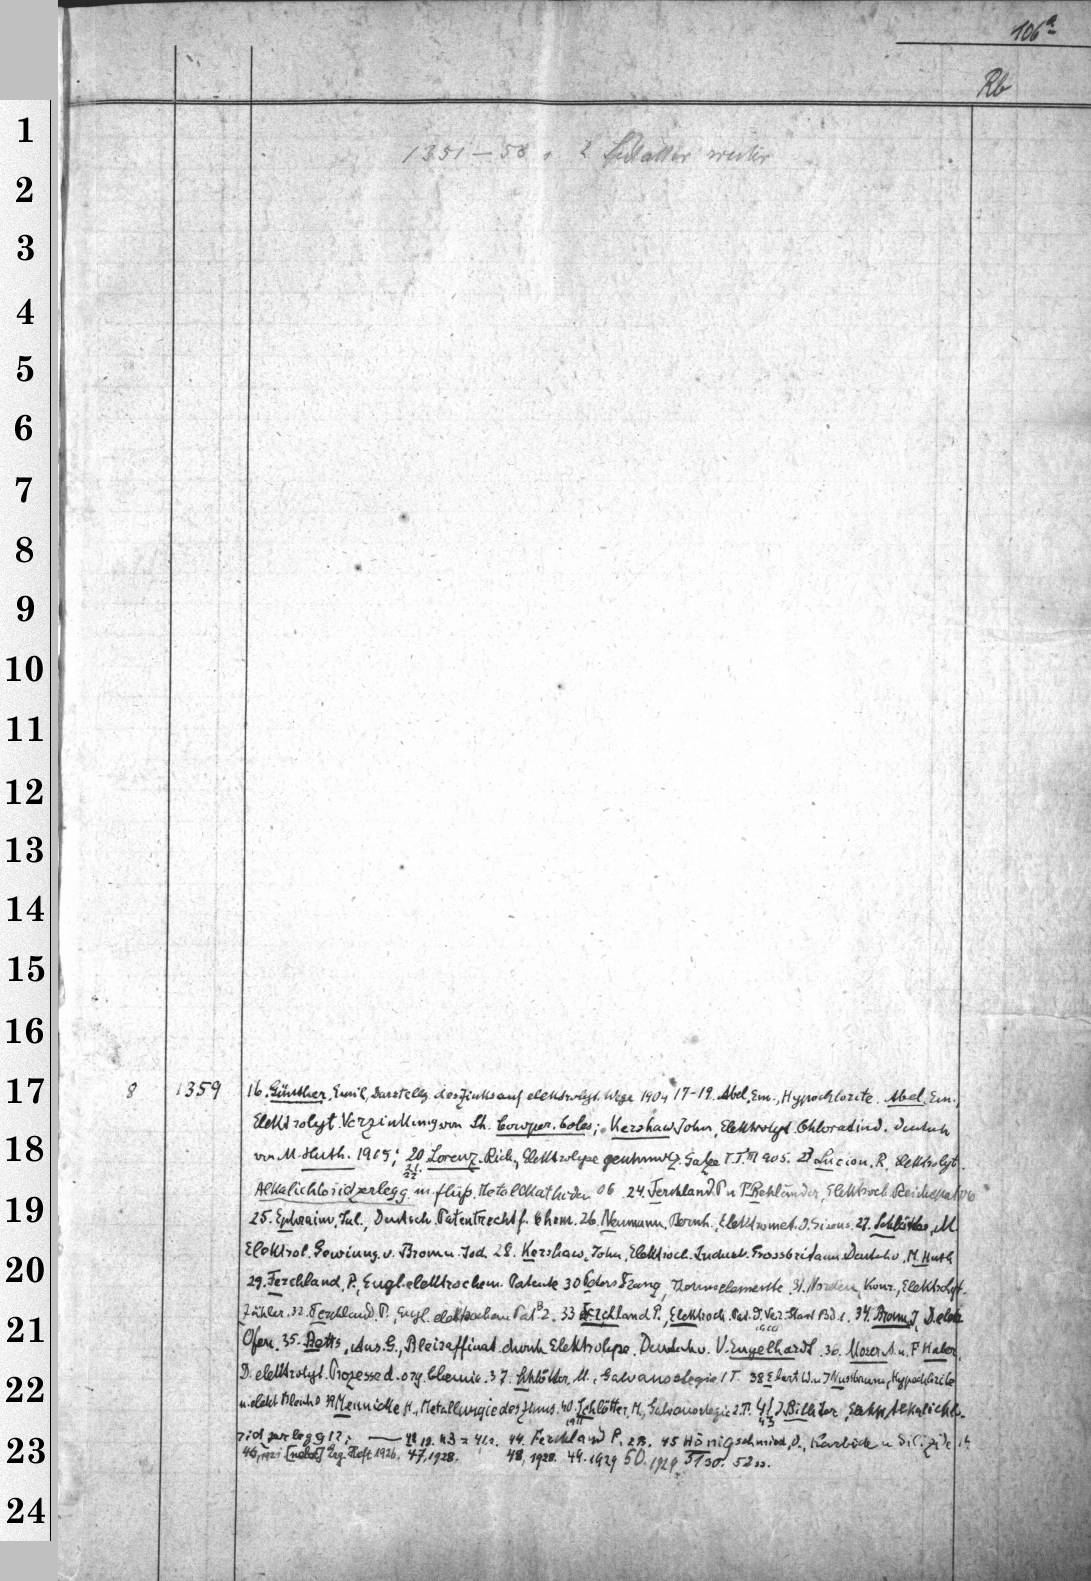 106a
Rb
1351 – 58 2 Blätter weiter
1
2
3
4
5
6
7
8
9
10
11
12
13
14
15
16
17
18
19
20
21
22
23
24
8 1359 16. Günther, Emil, Darstellg. des Zinks auf elektrolyt. Wege 1904 17–19. Abel, Em., Hypochlorite. Abel, Em.,
Elektrolyt. Verzinkung von Sh. Cowper-Coles; Kershaw, John, Elektrolyt. Chloratind. Deutsch
von M. Huth. 1905; 20 Lorenz, Rich., Elektrolyse geschmolz. Salze T. 905. 23 Lucion, R. Elektrolyt.
21. 22
Alkalichloridzerlegg. m. flüß. Metallkathoden 06 24. Ferchland, P. u. P. Rehländer, Elektroch. Reichspat. 06
25. Ephraim, Jul., Deutsch. Patentrecht f. Chem. 26. Neumann, Bernh., Elektromet. d. Eisens. 27. Schlötter, M.
Elektrol. Gewinng. v. Brom u. Jod. 28. Kershaw, John, Elektroch. Industr. Grossbritann. Deutsch v. M. Huth
29. Ferchland, P., Engl. elektrochem. Patente 30 Peters Franz, Thermoelemente 31. Norden, Konr., Elektrolyt.
Zähler. 32. Ferchland, P., Engl. elektrochem. Pat. B 2. 33 Ferchland P., Elektroch. Pat. d. Ver. Staat Bd 1. 34. Bronn, J., D. elektr.
Öfen. 35. Betts, Ans. G., Bleiraffinat. durch Elektrolyse. Deutsch v. V. Engelhardt. 36. Moser A. u. F Haber,
D. elektrolyt. Prozesse d. org. Chemie. 37. Schlötter, M., Galvanostegie 1 T. 38 Ebert W. u. J Nussbaum, Hypochlorite
u. elekt. Bleiche 39 Mennicke H., Metallurgie des Zinns. 40. Schlötter, M., Galvanostegie 2. T. 41 J. Billiter, Elektr. Alkalichlo-
rid zerlegg 12; 42 12. 43 = 41 2. 44. Ferchland P. 2 B. 45 Hönigschmid, O., Karbide u. Silizide 14
46, 1921 Erg. Heft 1926. 47, 1928. 48, 1928. 49. 1929 50. 1929 51 30. 52